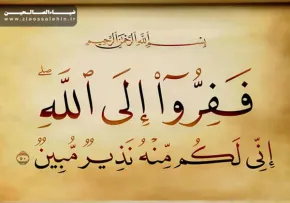 ضیاءالصالحین
www.ziaossalehin.ir
بِسْمِ اللَّهِ الرَّحْمَنِ الرَّحِيمِ
فَفِرُّوٓا۟ إِلَى ٱللَّهِ ۖ
إِنِّي لَكُم مِّنْهُ نَذِيرٌ مُّبِينٌ ﴿٥٠﴾